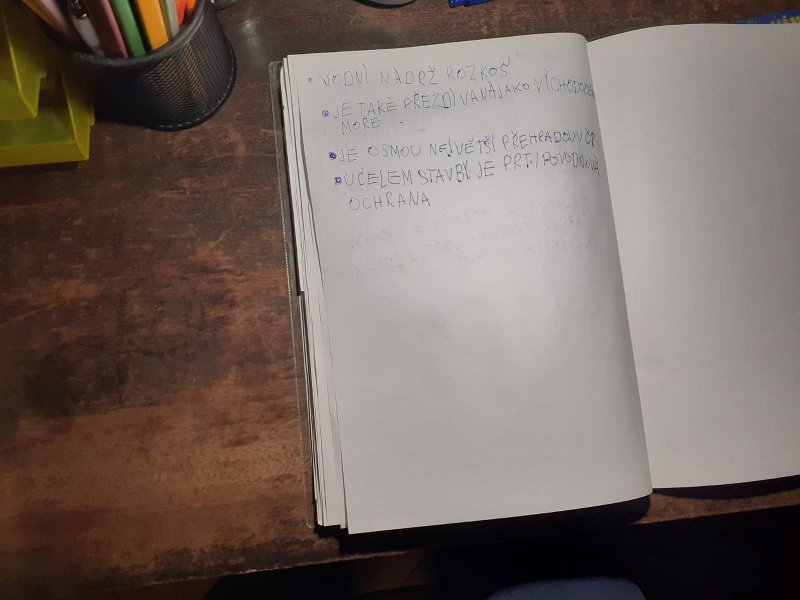 • VODNÍ NÁDRŽ ROZKOŠ
• JE TAKÉ PŘEZDÍVANÁ JAKO
MOŘE
• JE OSMOU NEJVĚTŠÍ PŘEHRADOU V ČR
• ÚČELEM STAVBY JE POVODŇOVÁ
OCHRANA